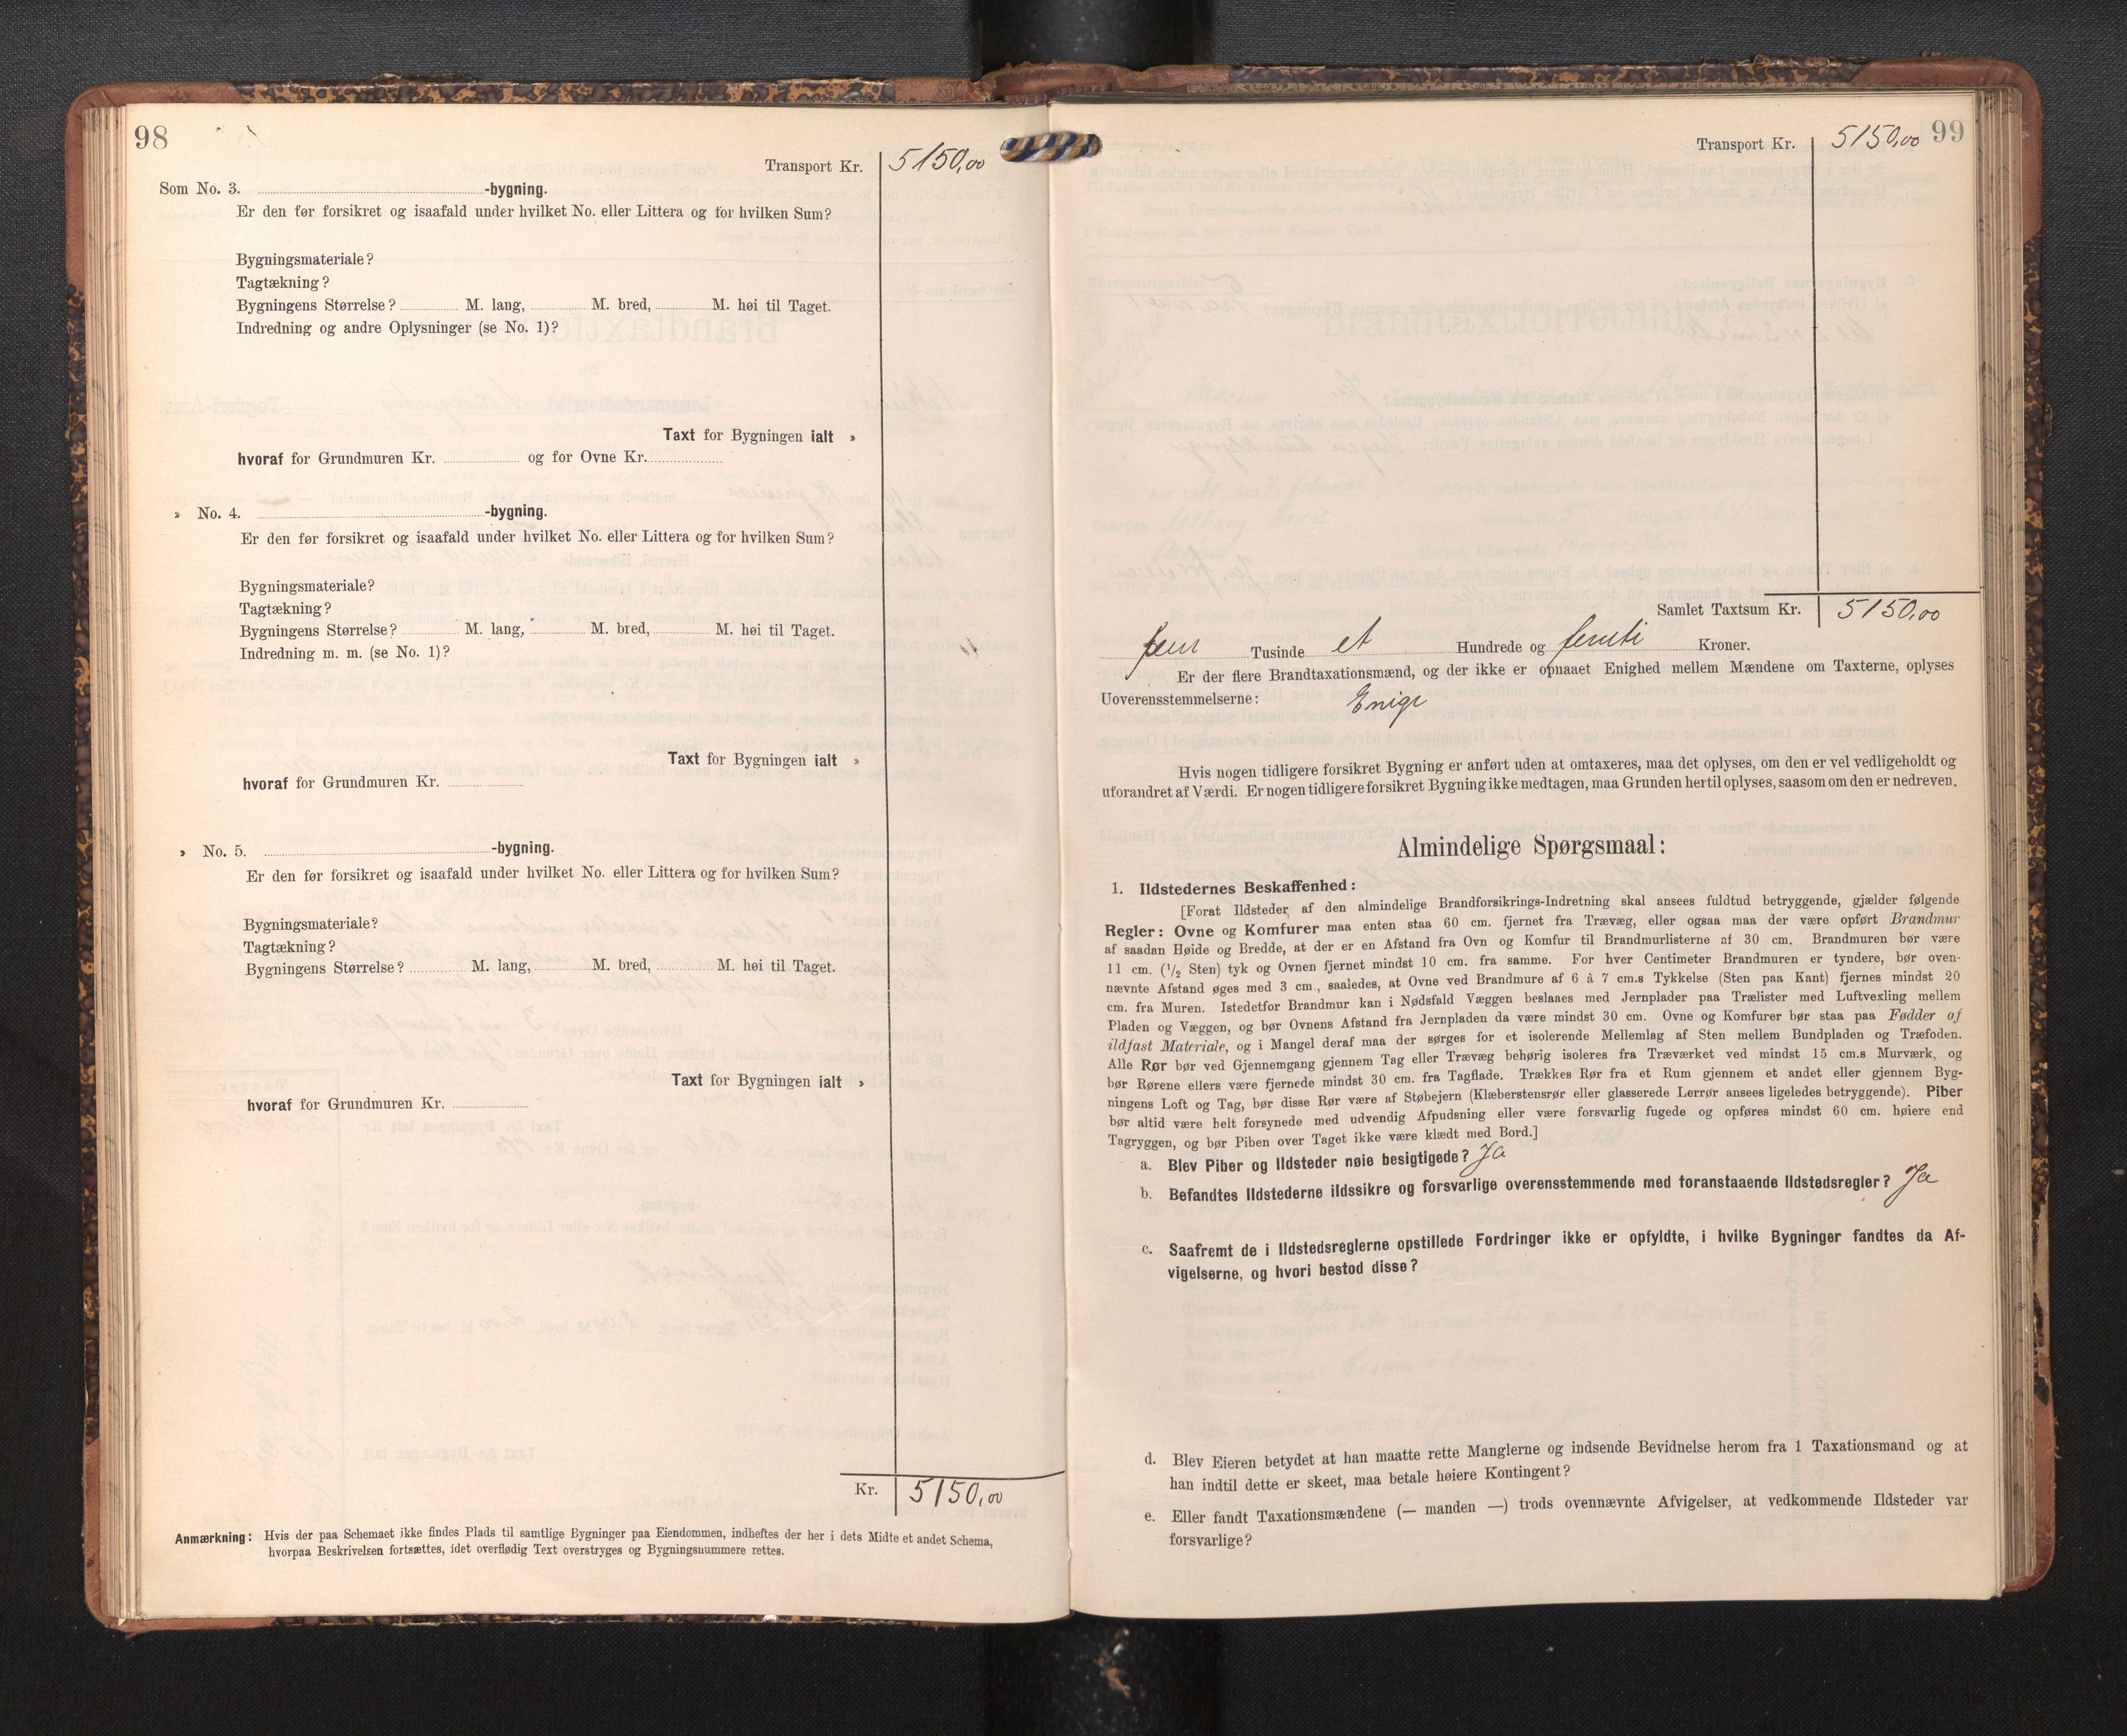 98
Transport Kr. 5150,00
Som No. 3. -bygning.
Er den før forsikret og isaafald under hvilket No. eller Littera og for hvilken Sum?
Bygningsmateriale?
Tagtækning?
Bygningens Størrelse? M. lang, M. bred, M. høi til Taget.
Indredning og andre Oplysninger (se No. 1)?
Taxt for Bygningen ialt »
hvoraf for Grundmuren Kr. og for Ovne Kr.
» No. 4. -bygning.
Er den før forsikret og isaafald under hvilket No. eller Littera og for hvilken Sum?
Bygningsmateriale?
Tagtækning?
Bygningens Størrelse? M. lang, M. bred, M. høi til Taget.
Indredning m. m. (se No. 1)?
Taxt for Bygningen ialt »
hvoraf for Grundmuren Kr.
» No. 5. -bygning.
Er den før forsikret og isaafald under hvilket No. eller Littera og for hvilken Sum?
Bygningsmateriale?
Tagtækning?
Bygningens Størrelse? M. lang, M. bred, M. høi til Taget.
Taxt for Bygningen ialt »
hvoraf for Grundmuren Kr.
Kr. 5150,00
Anmærkning: Hvis der paa Schemaet ikke findes Plads til samtlige Bygninger paa Eiendommen, indheftes der her i dets Midte et andet Schema,
hvorpaa Beskrivelsen fortsættes, idet overflødig Text overstryges og Bygningsnummere rettes.
99
Transport Kr. 5150,00
Samlet Taxtsum Kr. 5150,00
fem Tusinde et Hundrede og femti Kroner.
Er der flere Brandtaxationsmænd, og der ikke er opnaaet Enighed mellem Mændene om Taxterne, oplyses
Uoverensstemmelserne: Enige
Hvis nogen tidligere forsikret Bygning er anført uden at omtaxeres, maa det oplyses, om den er vel vedligeholdt og
uforandret af Værdi. Er nogen tidligere forsikret Bygning ikke medtagen, maa Grunden hertil oplyses, saasom om den er nedreven.
Almindelige Spørgsmaal:
1. Ildstedernes Beskaffenhed:
[Forat Ildsteder af den almindelige Brandforsikrings-Indretning skal ansees fuldtud betryggende, gjælder følgende
Regler: Ovne og Komfurer maa enten staa 60 cm. fjernet fra Trævæg, eller ogsaa maa der være opført Brandmur
af saadan Høide og Bredde, at der er en Afstand fra Ovn og Komfur til Brandmurlisterne af 30 cm. Brandmuren bør være
11 cm. (1/2 Sten) tyk og Ovnen fjernet mindst 10 cm. fra samme. For hver Centimeter Brandmuren er tyndere, bør oven-
nævnte Afstand øges med 3 cm., saaledes, at Ovne ved Brandmure af 6 à 7 cm.s Tykkelse (Sten paa Kant) fjernes mindst 20
cm. fra Muren. Istedetfor Brandmur kan i Nødsfald Væggen beslaaes med Jernplader paa Trælister med Luftvexling mellem
Pladen og Væggen, og bør Ovnens Afstand fra Jernpladen da være mindst 30 cm. Ovne og Komfurer bør staa paa Fødder af
ildfast Materiale, og i Mangel deraf maa der sørges for et isolerende Mellemlag af Sten mellem Bundpladen og Træfoden.
Alle Rør bør ved Gjennemgang gjennem Tag eller Trævæg behørig isoleres fra Træværket ved mindst 15 cm.s Murværk, og
bør Rørene ellers være fjernede mindst 30 cm. fra Tagflade. Trækkes Rør fra et Rum gjennem et andet eller gjennem Byg-
ningens Loft og Tag, bør disse Rør være af Støbejern (Klæberstensrør eller glasserede Lerrør ansees ligeledes betryggende). Piber
bør altid være helt forsynede med udvendig Afpudsning eller være forsvarlig fugede og opføres mindst 60 cm. høiere end
Tagryggen, og bør Piben over Taget ikke være klædt med Bord.]
a. Blev Piber og Ildsteder nøie besigtigede? Ja
b. Befandtes Ildstederne ildssikre og forsvarlige overensstemmende med foranstaaende Ildstedsregler? Ja
c. Saafremt de i Ildstedsreglerne opstillede Fordringer ikke er opfyldte, i hvilke Bygninger fandtes da Af-
vigelserne, og hvori bestod disse?
d. Blev Eieren betydet at han maatte rette Manglerne og indsende Bevidnelse herom fra 1 Taxationsmand og at
han indtil dette er skeet, maa betale høiere Kontingent?
e. Eller fandt Taxationsmændene (— manden —) trods ovennævnte Afvigelser, at vedkommende Ildsteder var
forsvarlige?